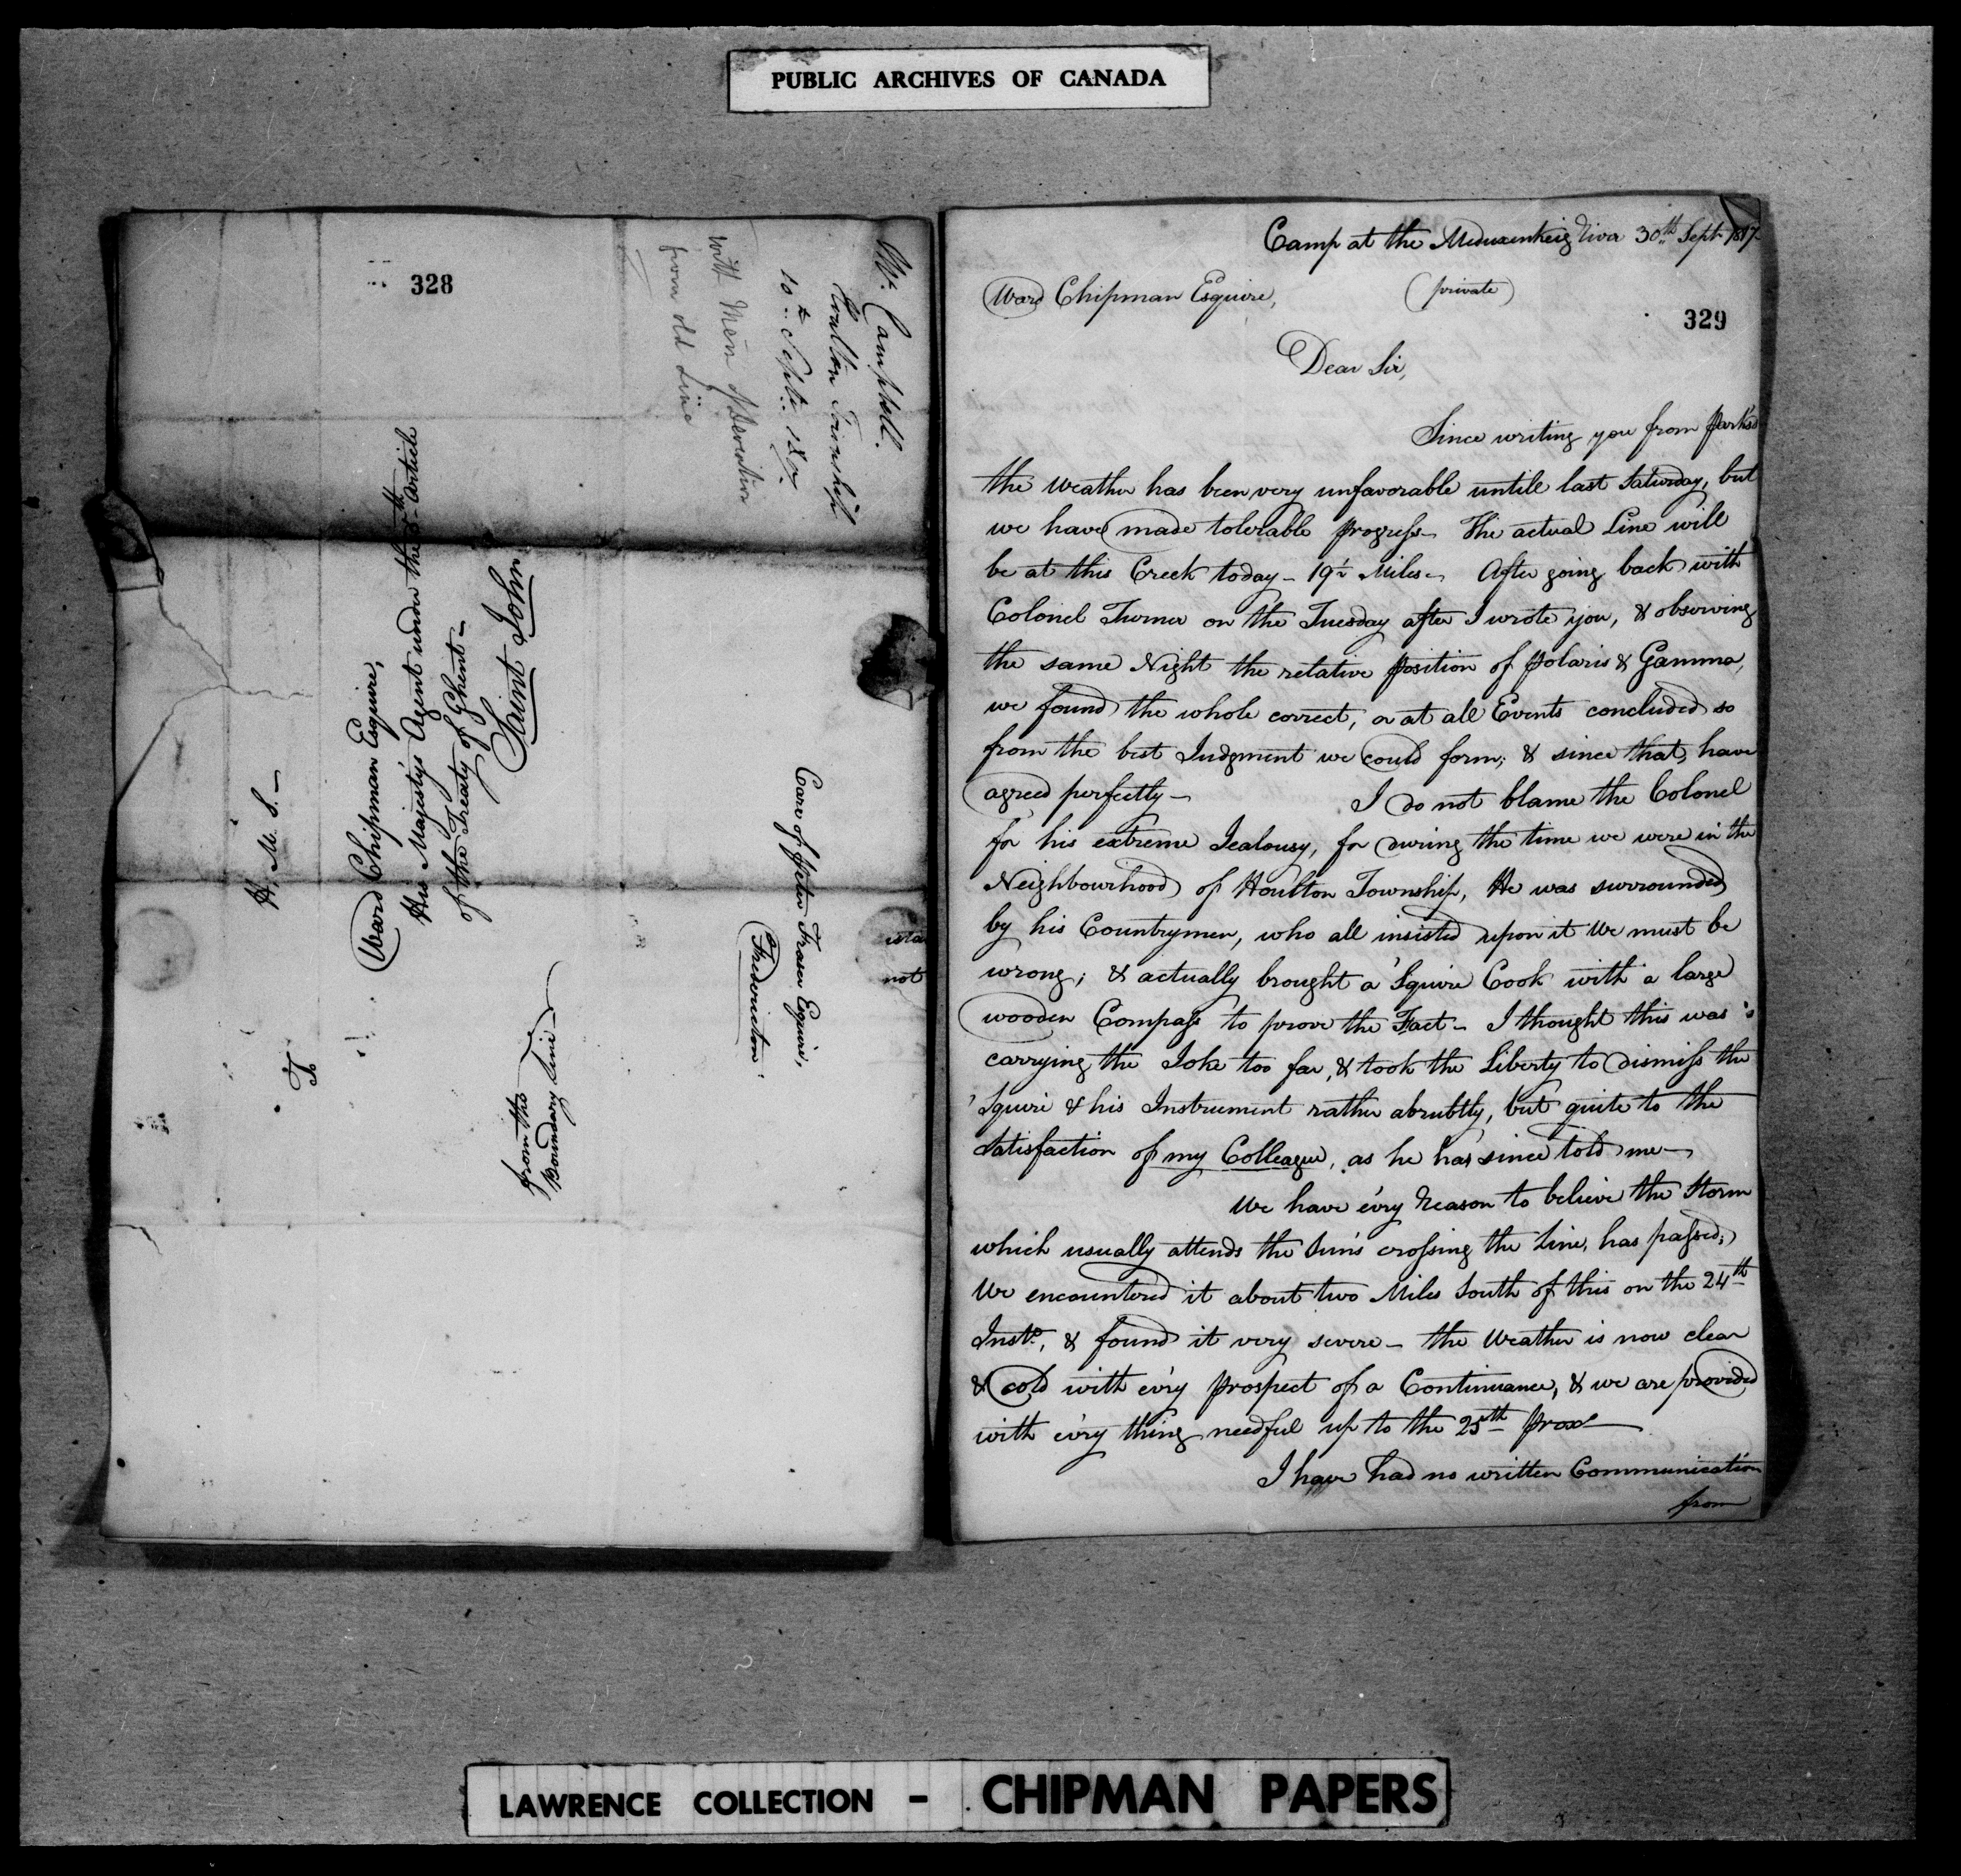 PUBLIC ARCHIVES OF CANADA
328
Mr. Campbell.
Houlton Township
10th Septr. 1817
with Mem of Deviation
from old Line
H. M. S.—
To
Ward Chipman Esquire,
His Majesty's Agent under the 5th Article
of the Treaty of Ghent—
Saint John
from the
Boundary Line
Care of Peter Fraser Esquire,
Fredericton.
ista
not
Camp at the Meduxenkeig River 30th Sept. 1817—
Ward Chipman Esquire,
(private)
329
Dear Sir,
Since writing you from Park's
the weather has been very unfavorable untill last Saturday, but
we have made tolerable progress— The actual Line will
be at this Creek today— 19½ Miles— After going back with
Colonel Turner on the Tuesday after I wrote you, & observing
the same Night the relative position of Polaris & Gamma,
we found the whole correct, or at all Events concluded so
from the best Judgment we could form; & since that, have
agreed perfectly— I do not blame the Colonel
for his extreme Jealousy, for during the time we were in the
Neighbourhood of Houlton Township, He was surrounded
by his Countrymen, who all insisted upon it We must be
wrong; & actually brought a 'Squire Cook with a large
wooden Compass to prove the Fact— I thought this was
carrying the Joke too far, & took the Liberty to dismiss the
'Squire & his Instrument rather abrubtly, but quite to the
Satisfaction of my Colleague, as he has since told me—
We have ev'ry Reason to believe the Storm
which usually attends the Sun's crossing the Line, has passed;
We encountered it about two Miles South of this on the 24th
Insto, & found it very severe— the Weather is now clear
& cold with ev'ry prospect of a Continuance, & we are provided
with ev'ry thing needful up to the 25th Proxo—
I have had no written Communication
from
LAWRENCE COLLECTION - CHIPMAN PAPERS